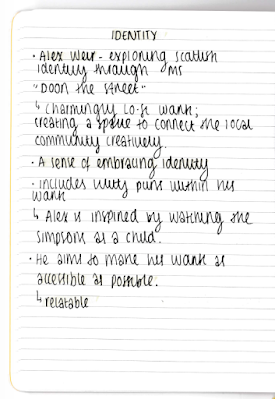 IDENTITY
· Alex Weir - exploring scottish
identity through ms
"DOON the street"
↳ charmingly lo-fi work;
creating a space to connect the local
community creatively.
· A sense of embracing identity
· includes witty puns within his
work
↳ Alex is inspired by watching the
simpsons as a child.
· He aims to make his work as
accessible as possible.
↳ relatable